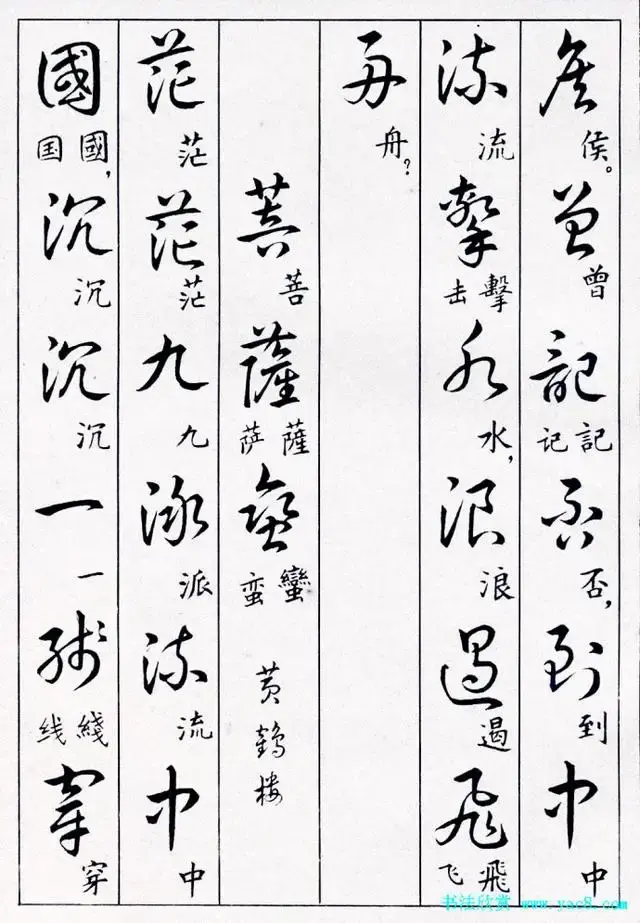 侯 侯。 曾 曾 記 記 记 否 否， 到 到 中 中
流 流 擊 擊 击 水 水， 浪 浪 遏 遏 飛 飛 飞
舟 舟？
菩 菩 薩 薩 萨 蠻 蠻 蛮 黄鹤楼
茫 茫 茫 茫 九 九 派 派 流 流 中 中
國 國， 国 沉 沉 沉 沉 一 一 綫 綫 线 穿 穿
书法欣赏 www.yac8.com